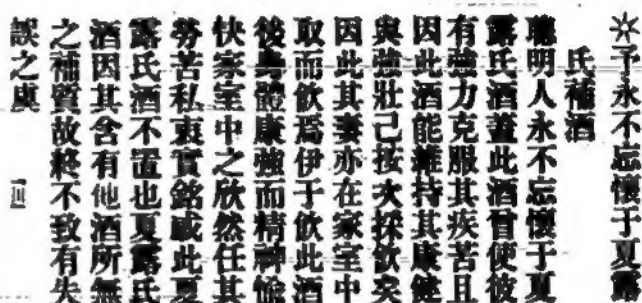 予永不忘懷于夏露
氏補酒
聰明人永不忘懷于夏
露氏酒蓋此酒曾使彼
有強力克服其疾苦且
因此酒能維持其康健
與強壯己按次採飲矣
因此其妻亦在家室中
取而飲焉伊于飲此酒
後身體康強而精神愉
快家室中之欣然任其
勞苦私衷實銘感此夏
露氏酒不置也夏露氏
酒因其含有他酒所無
之補質故終不致有失
誤之虞